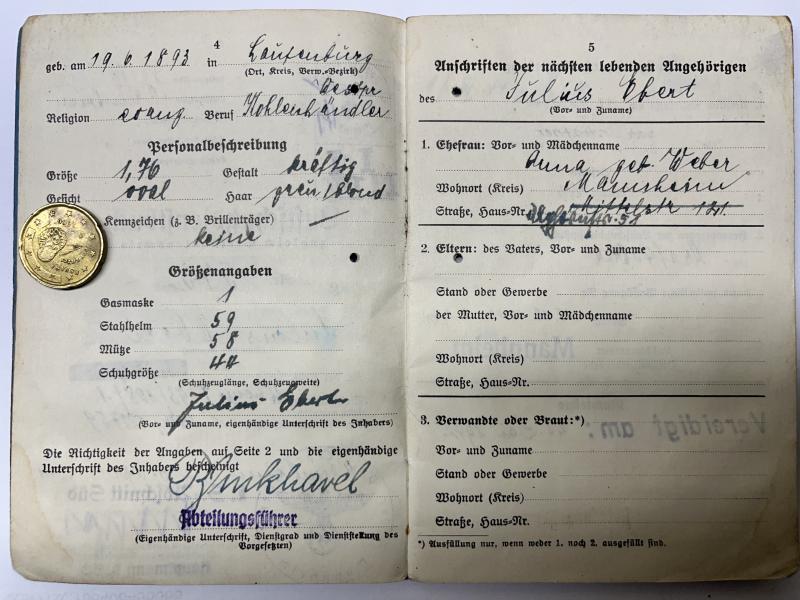 4
geb. am 19.6.1893 in Lautenburg
(Ort, Kreis, Verw.-Bezirk)
Religion evang Beruf Kohlenhändler
Personalbeschreibung
Größe 1,76 Gestalt kräftig
Gesicht oval Haar grau/blond
Kennzeichen (z. B. Brillenträger) —
keine
Größenangaben
Gasmaske 1
Stahlhelm 59
Mütze 58
Schuhgröße 44
(Schuhzeuglänge, Schuhzeugweite)
Julius Ebert
(Vor- und Zuname, eigenhändige Unterschrift des Inhabers)
Die Richtigkeit der Angaben auf Seite 2 und die eigenhändige
Unterschrift des Inhabers bescheinigt
Abteilungsführer
(Eigenhändige Unterschrift, Dienstgrad und Dienststellung des
Vorgesetzten)
5
Anschriften der nächsten lebenden Angehörigen
des Julius Ebert
(Vor- und Zuname)
1. Ehefrau: Vor- und Mädchenname
Anna geb. Weber
Wohnort (Kreis) Mannheim
Straße, Haus-Nr. Mittelstr 121
2. Eltern: des Vaters, Vor- und Zuname
Stand oder Gewerbe
der Mutter, Vor- und Mädchenname
Wohnort (Kreis)
Straße, Haus-Nr.
3. Verwandte oder Braut:*)
Vor- und Zuname
Stand oder Gewerbe
Wohnort (Kreis)
Straße, Haus-Nr.
*) Ausfüllung nur, wenn weder 1. noch 2. ausgefüllt sind.